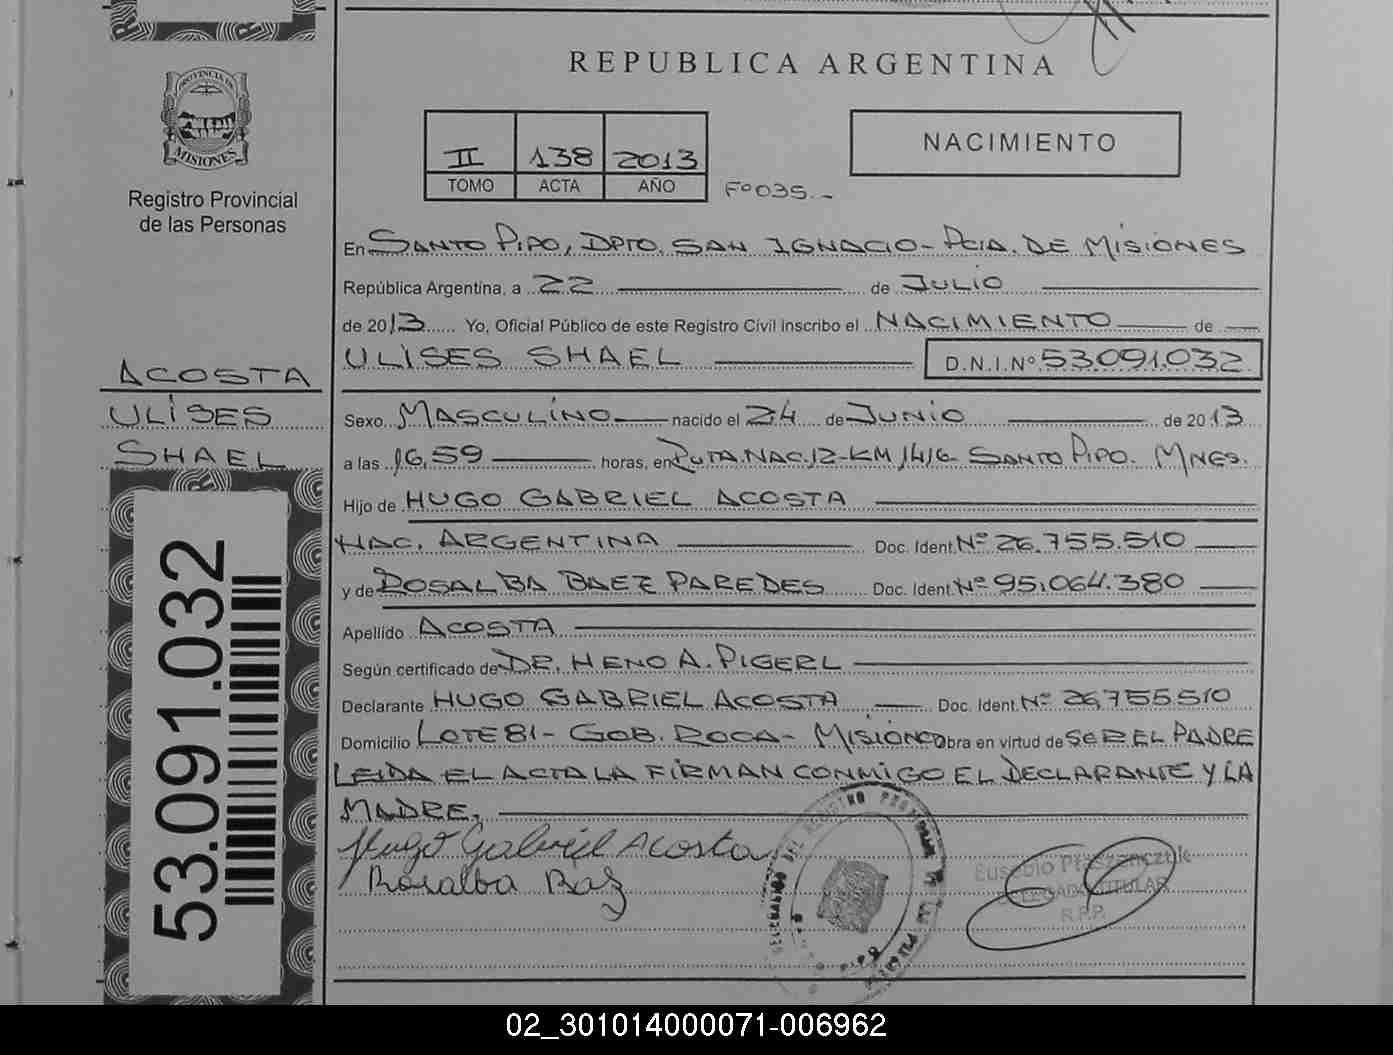 REPUBLICA ARGENTINA
PROVINCIA DE
MISIONES
Registro Provincial
de las Personas
II 138 2013
TOMO ACTA AÑO
Fº035.-
NACIMIENTO
En SANTO PIPO, DPTO. SAN IGNACIO- PCIA. DE MISIONES
República Argentina, a 22 de JULIO
de 2013 Yo, Oficial Público de este Registro Civil inscribo el NACIMIENTO de
ULISES SHAEL D.N.I.Nº 53.091.032
ACOSTA
ULISES
SHAEL
Sexo MASCULINO nacido el 24 de JUNIO de 2013
a las 16,59 horas, en RUTA NAC.12-KM 1416- SANTO PIPO. MNES.
Hijo de HUGO GABRIEL ACOSTA
NAC. ARGENTINA Doc. Ident. Nº 26.755.510
y de ROSALBA BAEZ PAREDES Doc. Ident. Nº 95.064.380
Apellido ACOSTA
Según certificado de DR. HENO A. PIGERL
Declarante HUGO GABRIEL ACOSTA Doc. Ident. Nº 26,755.510
Domicilio LOTE 81- GOB. ROCA- MISIONES Obra en virtud de SER EL PADRE
LEIDA EL ACTA LA FIRMAN CONMIGO EL DECLARANTE Y LA
MADRE.
Hugo Gabriel Acosta
Rosalba Baez
Eusebio
DELEGADO TITULAR
R.P.P.
53.091.032
02_301014000071-006962